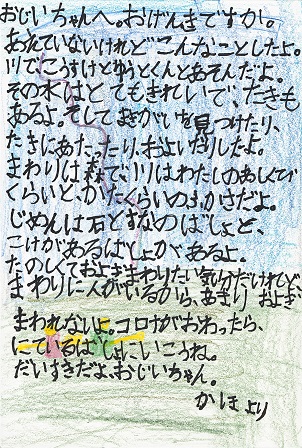 おじいちゃんへ。おげんきですか。
あえていないけれどこんなことしたよ。
川でこうすけとゆうとくんとあそんだよ。
その水はとてもきれいで、たきも
あるよ。そしてまきがいを見つけたり、
たきにあたったり、およいだりしたよ。
まわりは森で、川はわたしのあしくび
くらいと、かたくらいのふかさだよ。
じめんは石とすなのばしょと、
こけがあるばしょがあるよ。
たのしくておよぎまわりたい気分だけれど、
まわりに人がいるから、あまりおよぎ
まわれないよ。コロナがおわったら、
にているばしょにいこうね。
だいすきだよ、おじいちゃん。
かほより